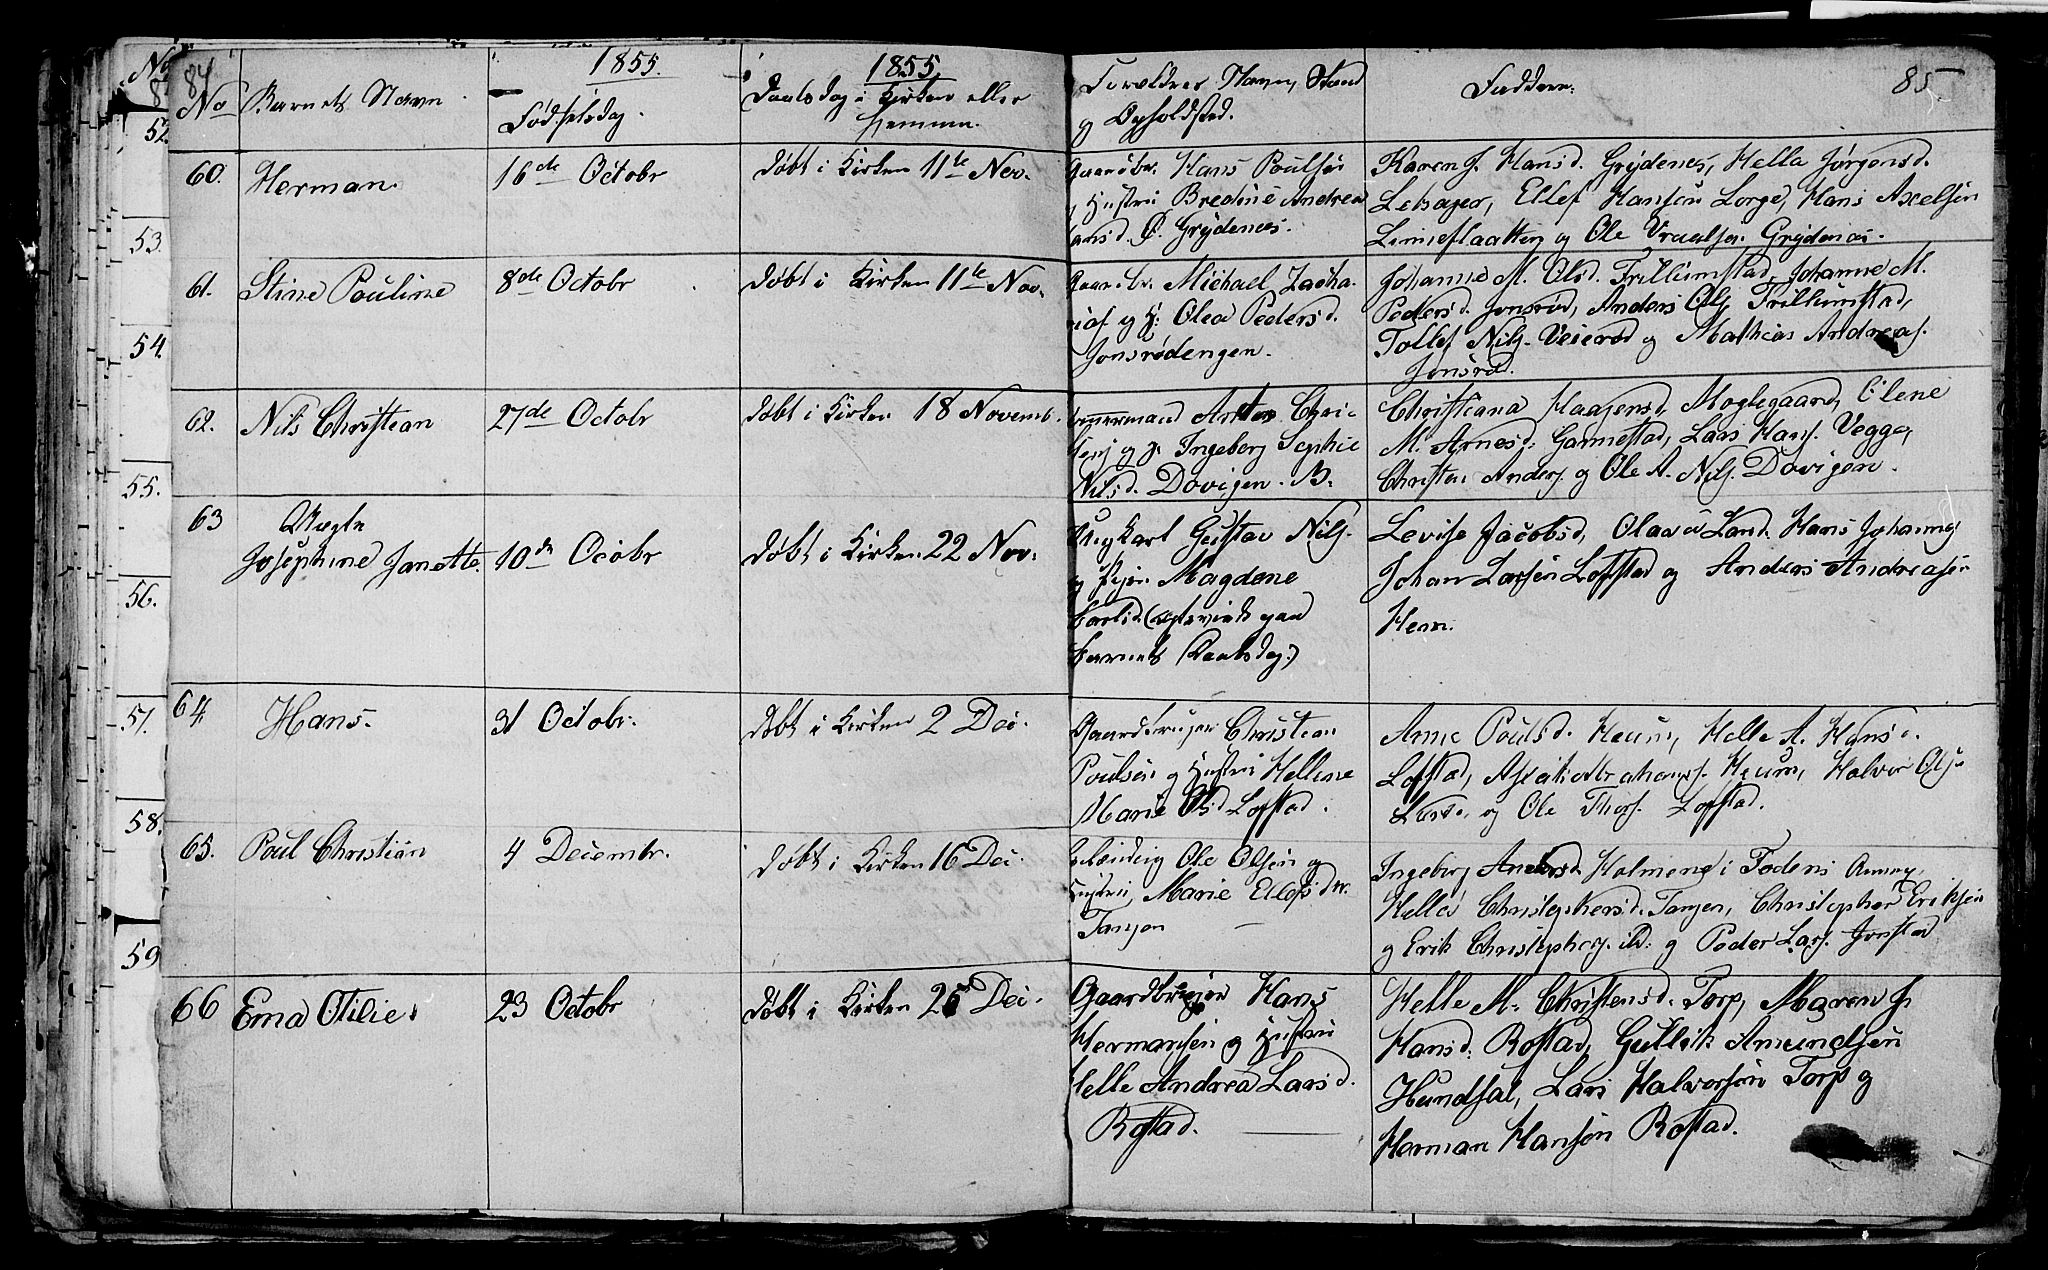 84
1855.
1855
85
No Barnets Navn
Fødselsdag.
Daabsdag i Kirken eller
hjemme.
Forældres Navn, Stand
og Opholdsted.
Faddere.
60. Herman. 16de Octobr Døbt i Kirken 11te Nov.
Gaardbr. Hans Poulsen
Hustru Bredine Andrea
Hansd. Ø. Grydenes.
Karen J. Hansd. Grydenes, Hella Jørgensd.
Lehager, Ellef Hansøn Lorge, Hans Axelsøn
og Ole Grydenes.
61. Stine Pouline 8de Octobr Døbt i Kirken 11te Nov.
Gaardbr. Michael Zacha-
rias. og H. Olea Pedersd.
Jonsrødengen.
Johanne M. Olsd. Trillumstad, Johanne M.
Pedersd. Jonsrød, Anders Ols. Trillumstad,
Tollef Nils. Veierød og Mathias Andreas.
Jonsrød.
62. Nils Christian 27de Octobr Døbt i Kirken 18 Novemb.
Chri-
og H. Ingeborg Sophie
Nilsd. Dovigen. B.
Christiana Haagensd. Moglegaard, Elene
M. Arnesd. Gannestad, Lars Hans. Vegge,
Christen Anders. og Ole A. Nils. Dovigen.
63 Uægte
Josephine Janette. 10de Octobr Døbt i Kirken 22 Nov.
Ungkarl Gustav Nils.
og Pige Magdene
Karlsd. (ægteviet paa
Barnets Daabsdag.)
Levise Jacobsd, Olava Land. Hans Johannes
Johan Larsen Lofstad og Anders Andreasen
Hem.
64. Hans. 31 Octobr. Døbt i Kirken 2 Dec.
Gaardbruger Christian
Poulsen og Hustru Hellene
Marie Olsd. Lofstad.
Anne Poulsd. Heum, Helle A. Hansd.
Lofstad, Heum, Halvor Ols.
og Ole Thors. Lofstad.
65. Poul Christian 4 Decembr. Døbt i Kirken 16 Dec.
Ole Olsen og
Hustru, Marie Ellefsd.
Tangen
Ingeborg Andersd. Holmene i Fodens
Hella Christophersd. Tangen, Christopher Eriksen
og Erik Christophers. ibd. og Peder Lars. Jonstad
66 Ema Otilie. 23 Octobr Døbt i Kirken 26 Dec.
Gaardbruger Hans
Hermansen og Hustru
Helle Andrea Larsd.
Rostad.
Helle M. Christensd. Torp, Maren J.
Hansd. Rostad, Gullik Amundsen
Hundsal, Lars Halvorsøn Torp og
Herman Hansøn Rostad.
52.
53.
54.
55.
56.
57.
58.
59